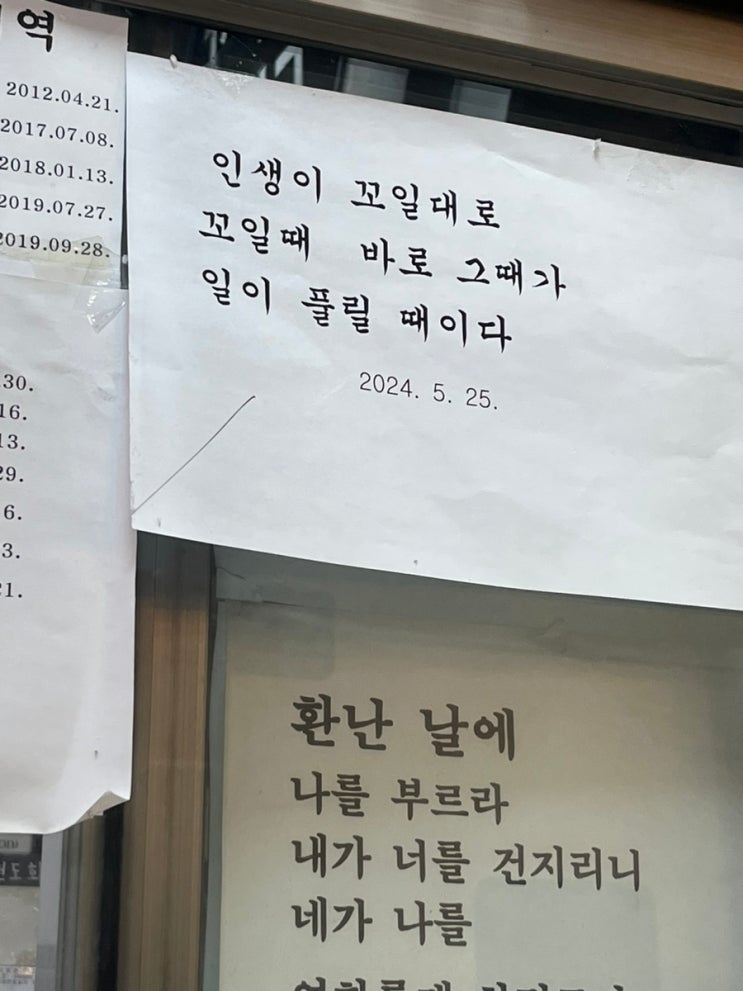 역
2012.04.21.
2017.07.08.
2018.01.13.
2019.07.27.
2019.09.28.
30.
16.
13.
29.
6.
3.
21.
인생이 꼬일대로
꼬일때 바로 그때가
일이 플릴 때이다
2024. 5. 25.
환난 날에
나를 부르라
내가 너를 건지리니
네가 나를